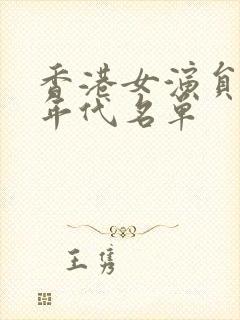 香港女演員
年代名單
王隽